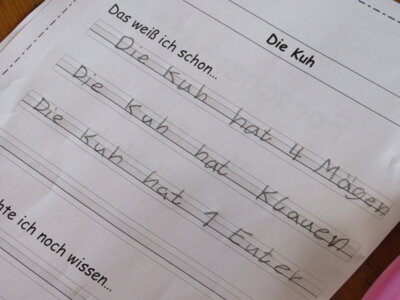 Die Kuh
Das weiß ich schon...
Die Kuh hat 4 Mägen
Die Kuh hat Klauen
Die Kuh hat 1 Euter
hte ich noch wissen...